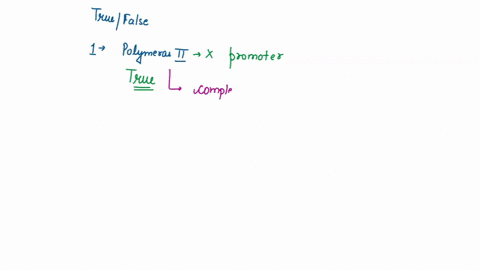 True/False
1→ Polymeras II → x promoter
True
↳ comple